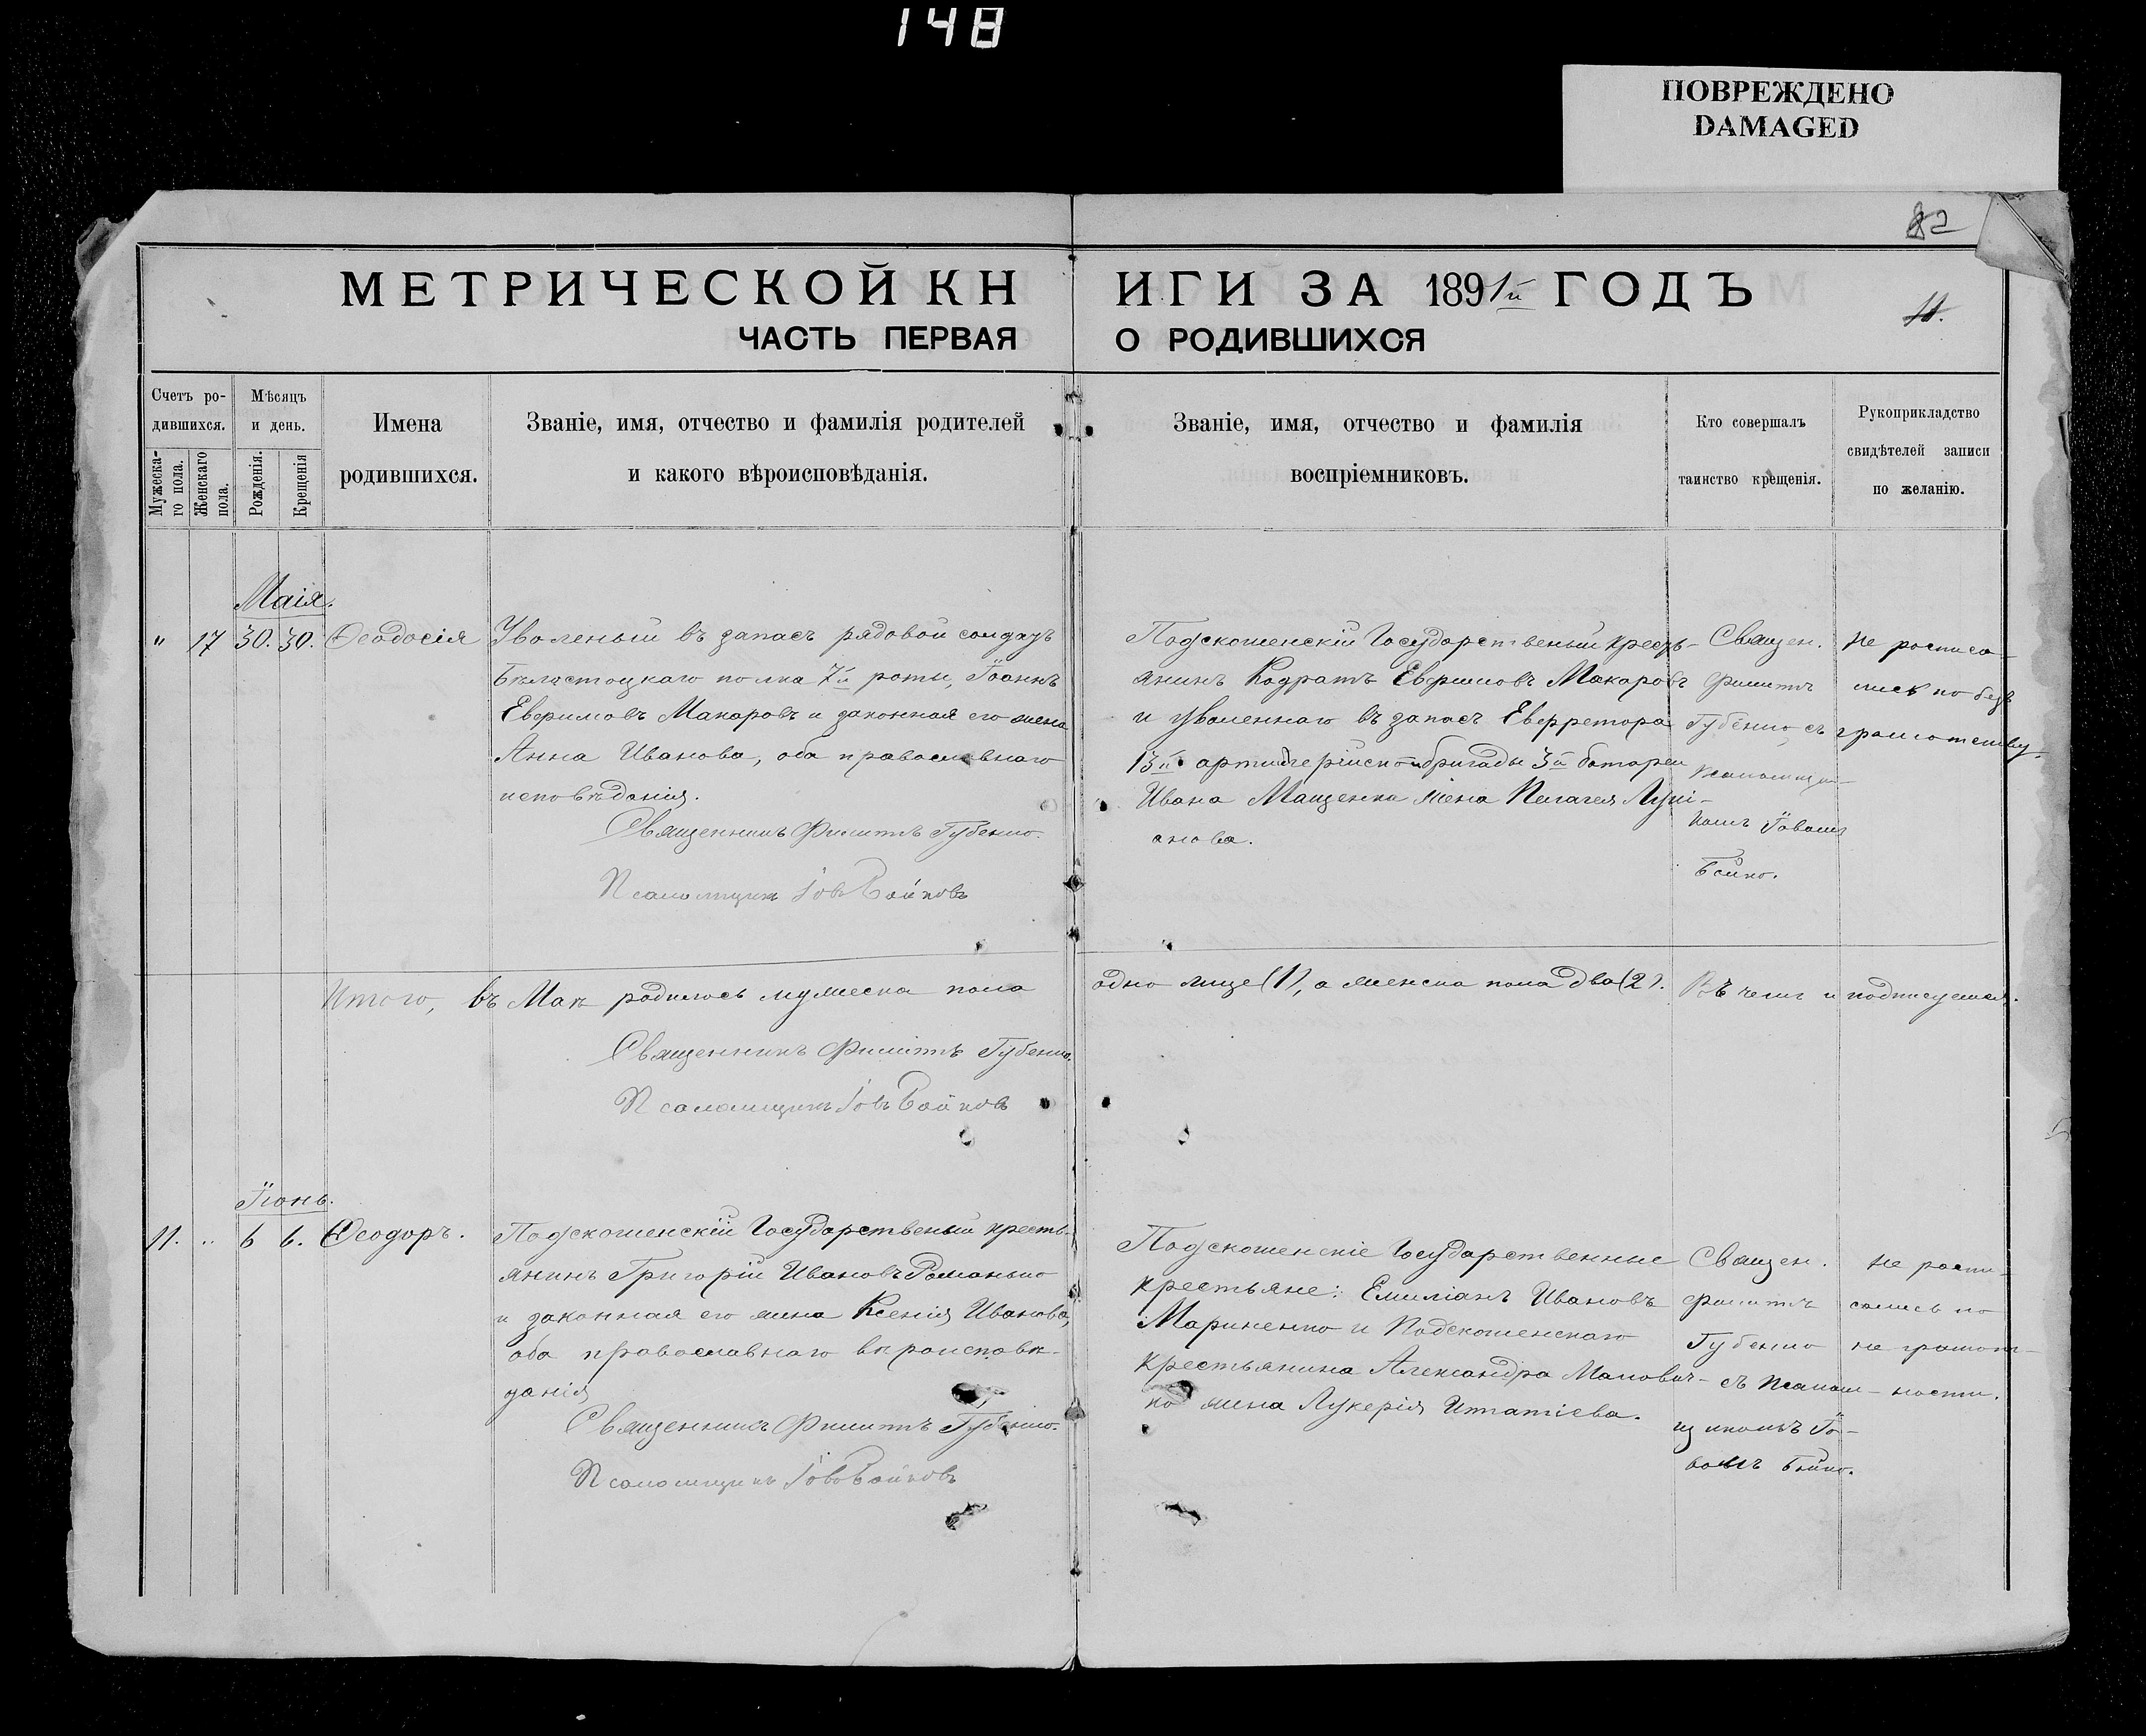 148
ПОВРЕЖДЕНО
DAMAGED
82
МЕТРИЧЕСКОЙ КНИГИ ЗА 1891й ГОДЪ
11.
ЧАСТЬ ПЕРВАЯ О РОДИВШИХСЯ
Счетъ ро-
дившихся.
Мужеска-
го пола.
Женскаго
пола.
Мѣсяцъ
и день.
Рожденія.
Крещенія
Имена
родившихся.
Званіе, имя, отчество и фамилія родителей
и какого вѣроисповѣданія.
Званіе, имя, отчество и фамилія
воспріемниковъ.
Кто совершалъ
таинство крещенія.
Рукоприкладство
свидѣтелей записи
по желанію.
Маія.
" 17 30. 30. Ѳеодосія
Уволеный въ запасъ рядовой солдатъ
Бѣластоцкаго полка 7й роты, Іоаннъ
Евфимовъ Макаровъ и законная его жена
Анна Иванова, оба православнаго
исповѣданія.
Священникъ Филиппъ Губенко.
Псаломщикъ Іовъ Бойковъ
Подскошенскій Государственый кресть-
янинъ Кодратъ Евфимовъ Макаровъ
и уволеннаго въ запасъ Еверретора
13й артилерійской бригады 3й батареи
Ивана Мащенка жена Пелагея Лукі-
анова.
Священ.
Филиппъ
Губенко, съ
псаломщи-
комъ Іовомъ
Бойко.
Не росписа-
лись по безъ
грамотству.
Итого, въ Маѣ родилось мужеска пола одно лице (1), а женска пола два (2). Въ чемъ и подписуемся.
Священникъ Филиппъ Губенко.
Псаломщикъ Іовъ Бойковъ
Іюнь.
11. " 6 6. Ѳеодоръ.
Подскошенскій Государственый кресть-
янинъ Григорій Ивановъ Романько
и законная его жена Ксенія Иванова,
оба православнаго вѣроисповѣ-
данія
Священникъ Филиппъ Губенко.
Псаломщикъ Іовъ Бойковъ
Подскошенскіе Государственные
крестьяне: Емиліанъ Ивановъ
Мариненко и Подскошенскаго
крестьянина Александра Малович-
ко жена Лукерія Игнатіева.
Священ.
Филиппъ
Губенко
съ Псалом-
щикомъ Іо-
вомъ Бойко.
Не роспи-
сались по
не грамот-
ности.